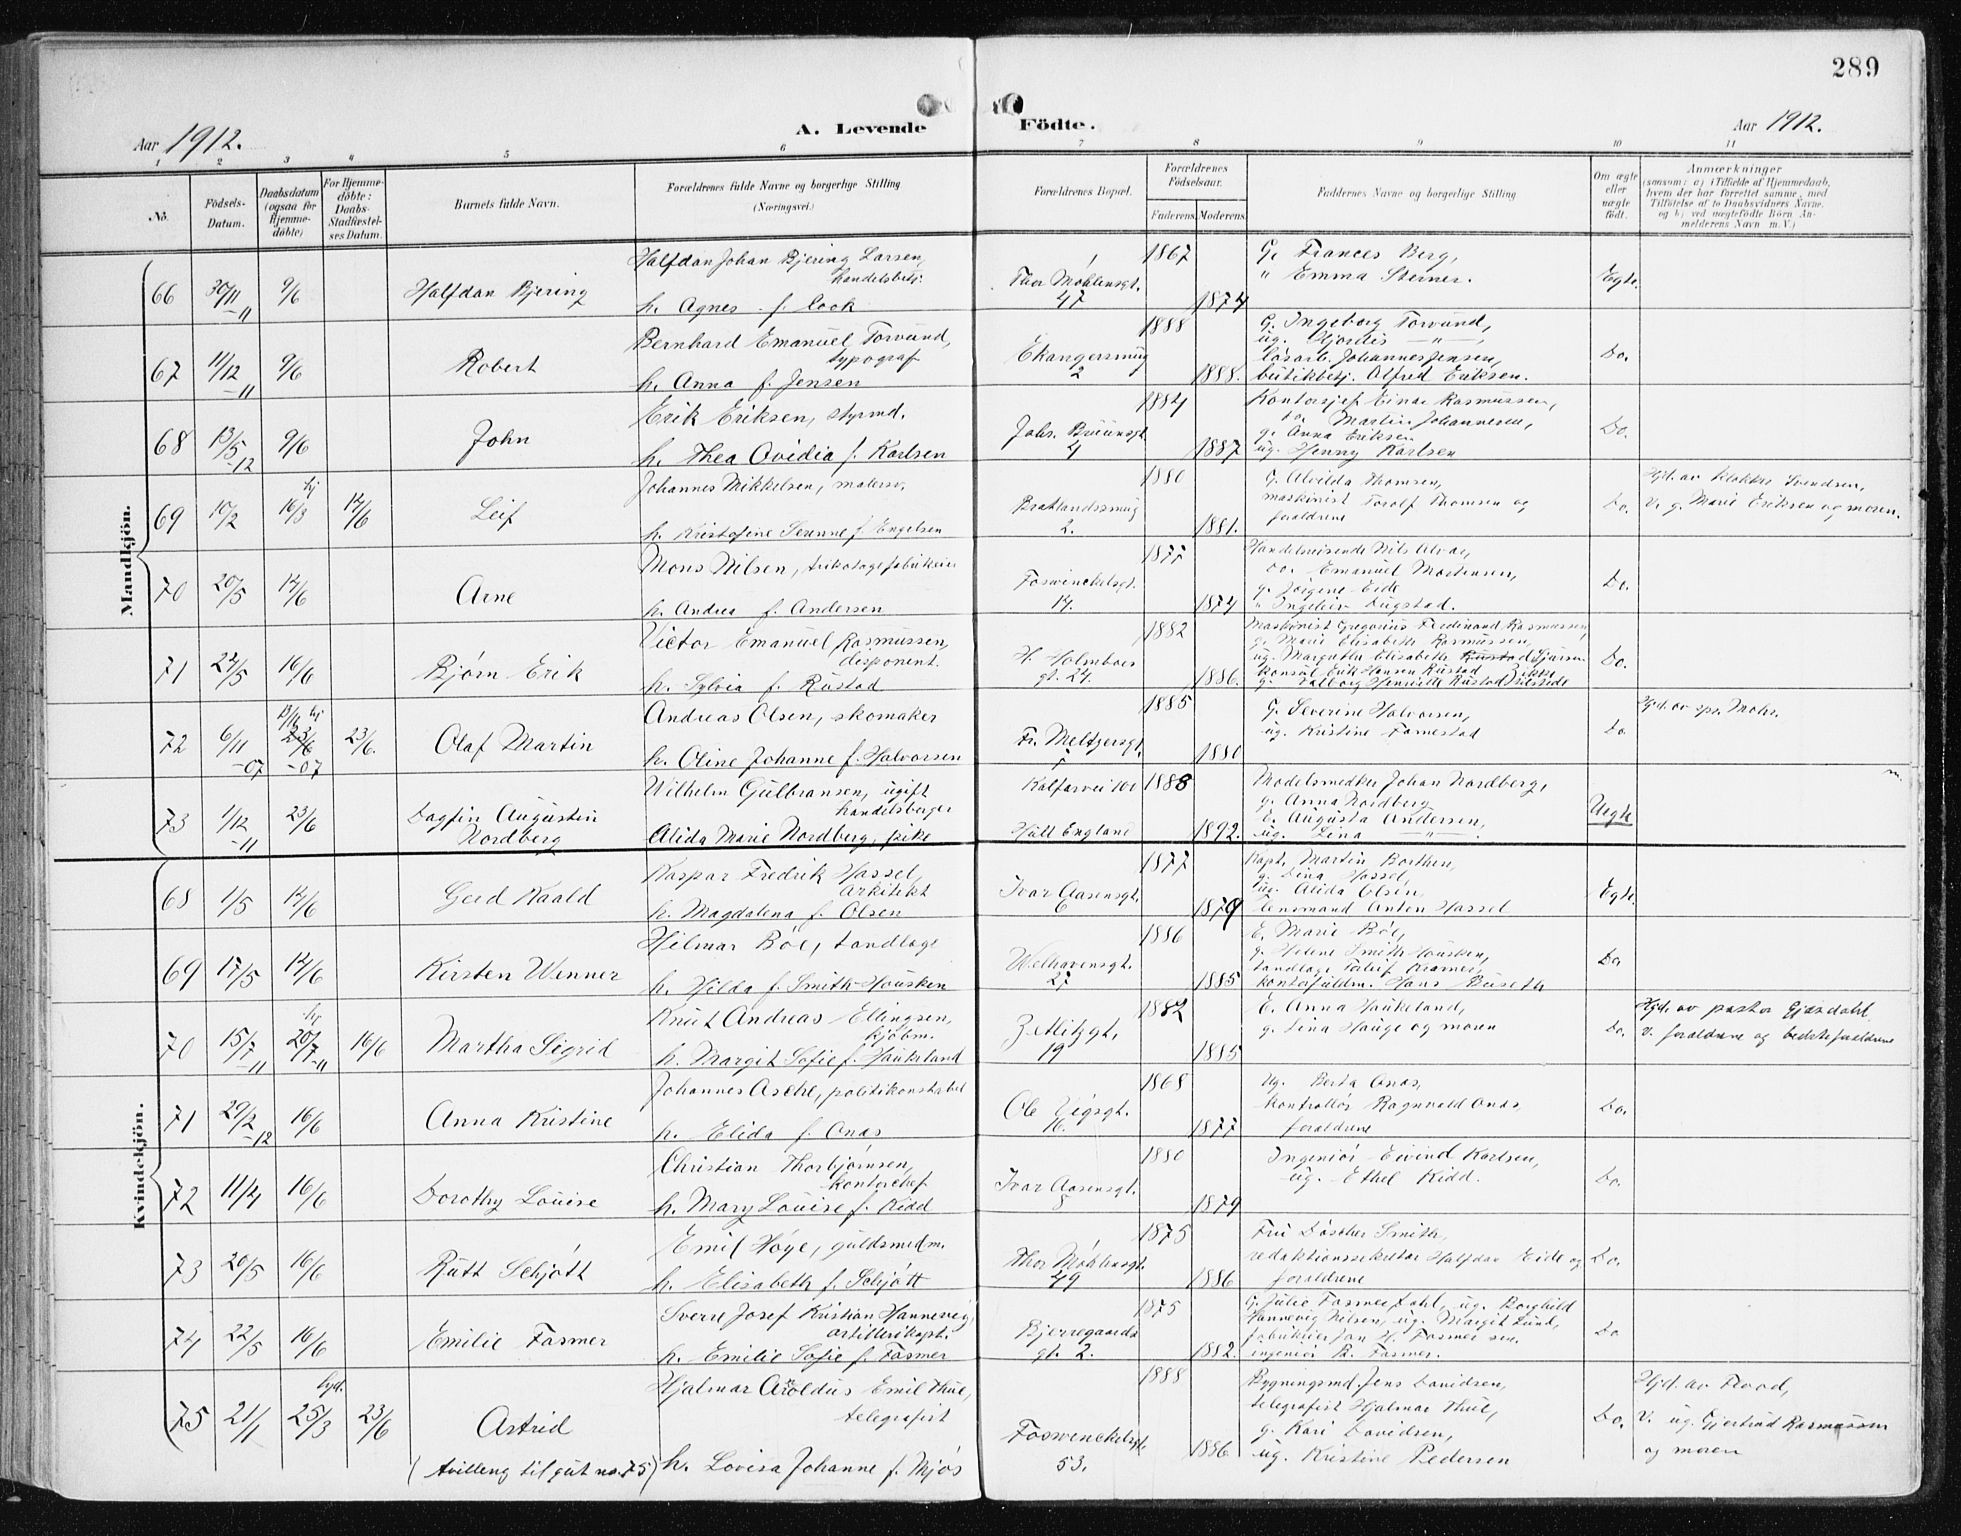 289
Aar 1912.
A. Levende Födte.
Aar 1912.
1 2 3 4 5 6 7 8 9 10 11
No.
Födsels-Datum.
Daabsdatum (ogsaa for Hjemmedöbte)
For Hjemmedöbte: Daabs-Stadfæstelses Datum.
Barnets fulde Navn.
Forældrenes fulde Navne og borgerlige Stilling
(Næringsvei.)
Forældrenes Bopæl.
Forældrenes Födselsaar.
Faderens Moderens
Faddernes Navne og borgerlige Stilling
Om ægte eller uægte födt.
Anmærkninger
(saasom: a) i Tilfælde af Hjemmedaab, hvem der har forrettet samme, med Tilföielse af to Daabsvidners Navne, og b) ved uægtefödte Börn Anmelderens Navn m. V.)
Mandkjön.
66 30/11 -11 9/6 Halfdan Bjering
Halfdan Johan Bjering Larsen, handelsbetj.
h. Agnes f. Cook
Thor Møhlensgt. 47
1867 1874
G. Frances Berg,
" Emma Steiner.
Egte.
67 11/12 -11 9/6 Robert
Bernhard Emanuel Torvund, typograf
h. Anna f. Jensen
Ekangersmug 2
1888 1888.
G. Ingeborg Torvund,
ug. Hjordis — " —,
løsarb. Johannes Jensen,
butikbetj. Alfred Eriksen.
Do.
68 13/5 -12 9/6 John
Erik Eriksen, styrmd.
h. Thea Ovidia f. Karlsen
Johs. Bruunsgt. 4
1884 1887
Kontorsjef Einar Rasmussen,
do. Martin Johannesen,
g. Anna Eriksen
ug. Henny Karlsen
Do.
69 10/2 hj 16/3 14/6 Leif
Johannes Mikkelsen, malersv.
h. Kristofine Serenne f. Engelsen
Bratlandssmug 2.
1880 1881.
G. Alvilda Thomsen,
maskinist Torolf Thomsen og
foraldrene
Do.
Hjd. av klokker Svendsen,
v. g. Marie Eriksen og moren.
70 20/5 14/6 Arne
Mons Nilsen, trikotagefabrikeier
h. Andrea f. Andersen
Foswinckelsgt. 14.
1877 1874
Handelsreisende Nils Alvær,
do. Emanuel Mortensen,
g. Jørgine Eide
" Ingeleiv Dugstad.
Do.
71 27/5 16/6 Bjørn Erik
Victor Emanuel Rasmussen, disponent.
h. Sylvia f. Rustad
H. Holmboes gt. 24.
1882 1886.
Maskinist Gregorius Ferdinand Rasmussen,
g. Marie Elisabeth Rasmussen,
ug. Margrethe Elisabeth
konsul Erik Hansen Rustad
g. Valborg Henriette Rustad
Do.
72 6/11 -07 13/11 hj 23/6 -07 23/6. Olaf Martin
Andreas Olsen, skomaker
h. Oline Johanne f. Halvorsen
Fr. Meltzersgt.
1885 1880
G. Severine Halvorsen,
ug. Kristine Farnestad
Do.
Hjd. av spr. Mohr.
73 1/12 -11 23/6 Dagfin Augustin Nordberg
Wilhelm Gulbransen, ugift handelsborger
Alida Marie Nordberg, pike
Kalfarvei 101
Hull England
1888 1892.
Modelsnedker Johan Nordberg,
g. Anna Nordberg
E. Augusta Andersen,
ug. Lina — " — .
Uegte
Kvindekjön.
68 1/5 14/6 Gerd Kaald
Kaspar Fredrik Hassel, arkitekt
h. Magdalena f. Olsen
Ivar Aasensgt. 6
1877 1879
Kapt. Martin Borthen,
g. Lina Hassel,
ug. Alida Olsen,
Lensmand Anton Hassel
Egte.
69 17/5 14/6 Kirsten Winner
Hilmar Böe, tandlæge
h. Hilda f. Smith-Housken
Welhavensgt. 27
1886 1885
E. Marie Böe,
g. Helene Smith Housken,
tandlæge Torleif Kramer,
kontorfuldm. Hans Buseth
Do.
70 15/7 -11 hj 20/7 -11 16/6 Martha Sigrid
Knut Andreas Ellingsen, kjøbm.
h. Margit Sofie f. Haukeland
Z. Mitzgt. 19
1882 1885
E. Anna Haukeland,
g. Lina Hauge og moren
Do.
Hjd. av pastor Gjesdahl
v. foraldrene og bedsteforældrene
71 29/2 -12 16/6 Anna Kristine
Johannes Asche, politikonstabel
h. Elida f. Onas
Ole Vigsgt. 16.
1868 1877
Ug. Berta Onas,
kontrollør Ragnvald Onas,
foraldrene
Do.
72 11/4 16/6 Dorothy Louise
Christian Thorbjørnsen, kontorchef
h. Mary Louise f. Kidd
Ivar Aasensgt. 8
1880 1879
Ingeniør Eivind Karlsen,
ug. Ethel Kidd.
Do.
73 20/5 16/6 Rutt Schjött
Emil Höye, guldsmedm.
h. Elisabeth f. Schjött
Thor Møhlensgt. 49
1875 1886
Fru Dösther Smith,
redaktionssekretær Halfdan Eide og
foraldrene
Do.
74 22/5 16/6 Emilie Fasmer
Sverre Josef Kristian Hannevig, artillerikapt.
h. Emilie Sofie f. Fasmer
Bjerregaards gt. 2.
1875 1882.
G. Julie Fasmer Dahl, ug. Borghild
Hannevig Nilsen, ug. Margit Lund,
fabrikeier Jan H. Fasmer sen.
ingeniør R. Fasmer.
Do
75 21/1 hjd. 25/3 23/6 Astrid
(tvilling til gut no. 75)
Hjalmar Aroldus Emil Thue, telegrafist
h. Lovisa Johanne f. Mjøs
Foswinckelsgt. 53.
1888 1886
Bygningsmd. Jens Davidsen,
telegrafist Hjalmar Thue,
g. Kari Davidsen,
ug. Kristine Pedersen
Do.
Hjd. av Flood,
v. ug. Gjertrud Rasmussen
og moren